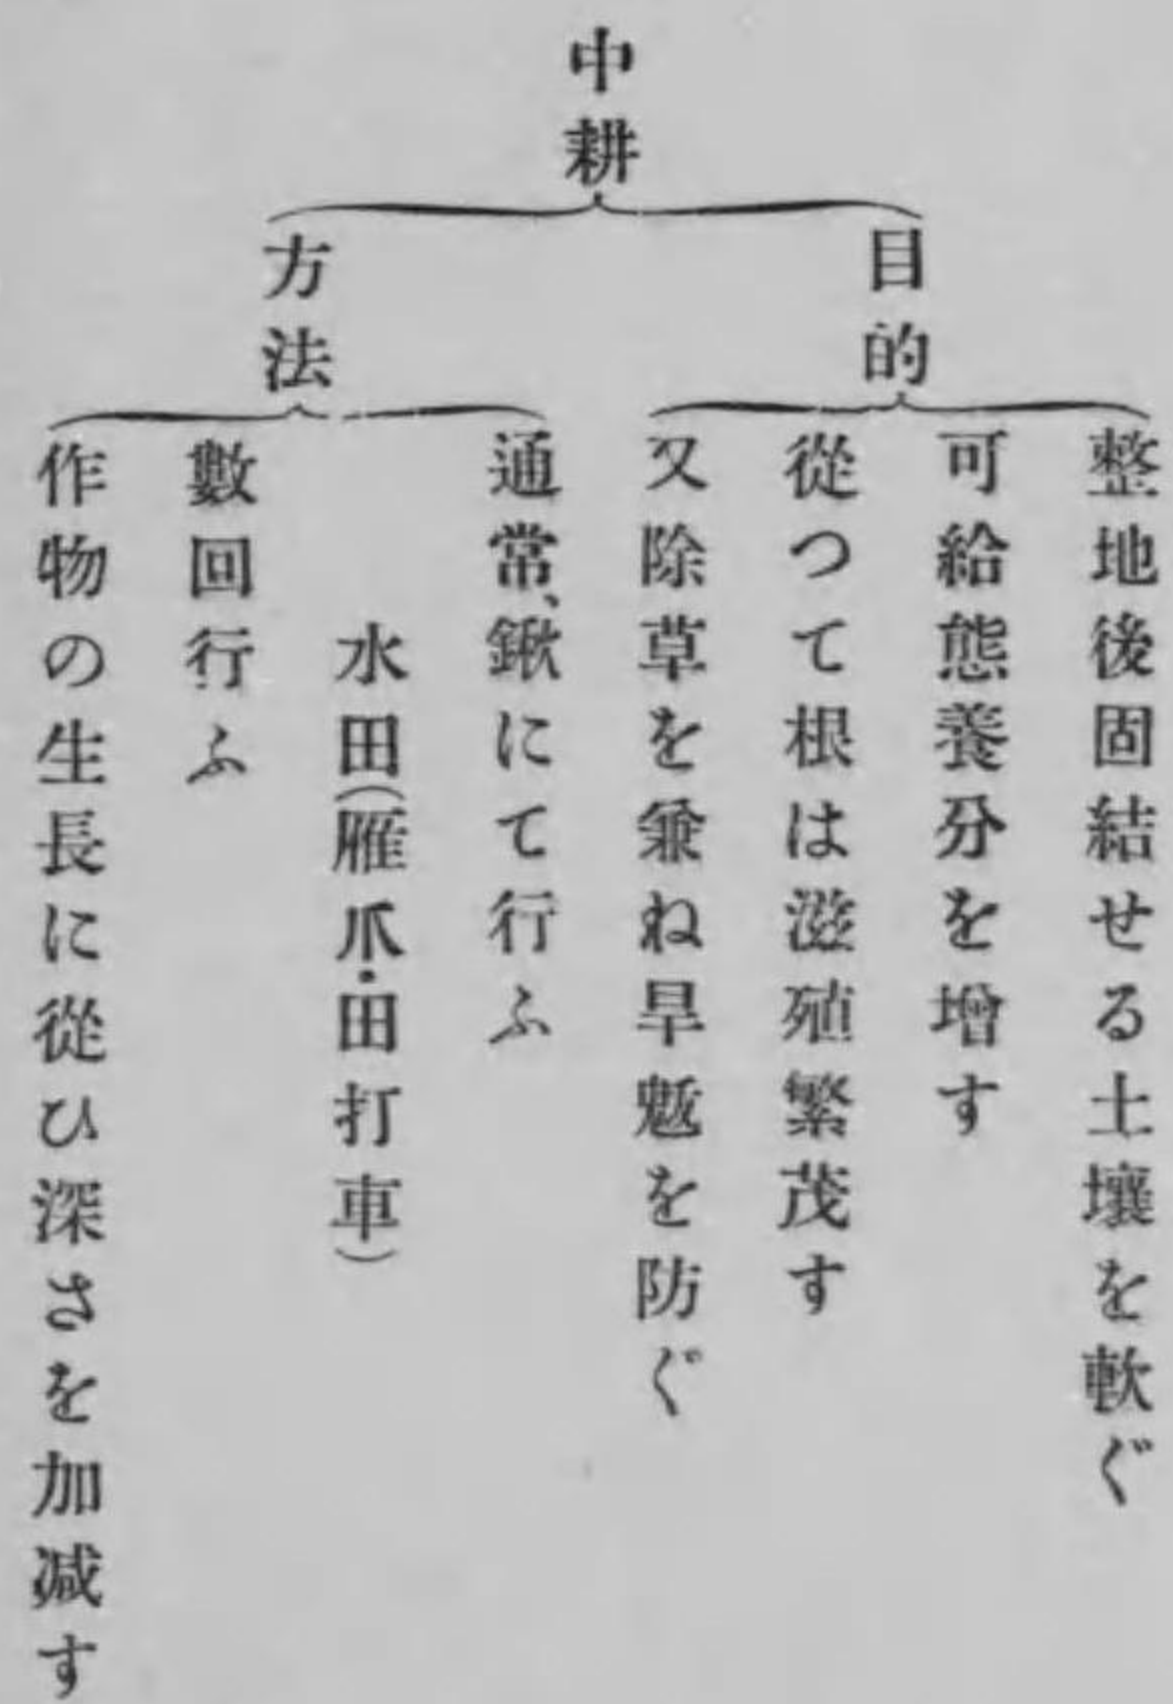 中耕
目的
整地後固結せる土壤を軟ぐ
可給態養分を增す
從つて根は滋殖繁茂す
又除草を兼ね旱魃を防ぐ
方法
通常、鍬にて行ふ
水田(雁爪・田打車)
數回行ふ
作物の生長に從ひ深さを加減す